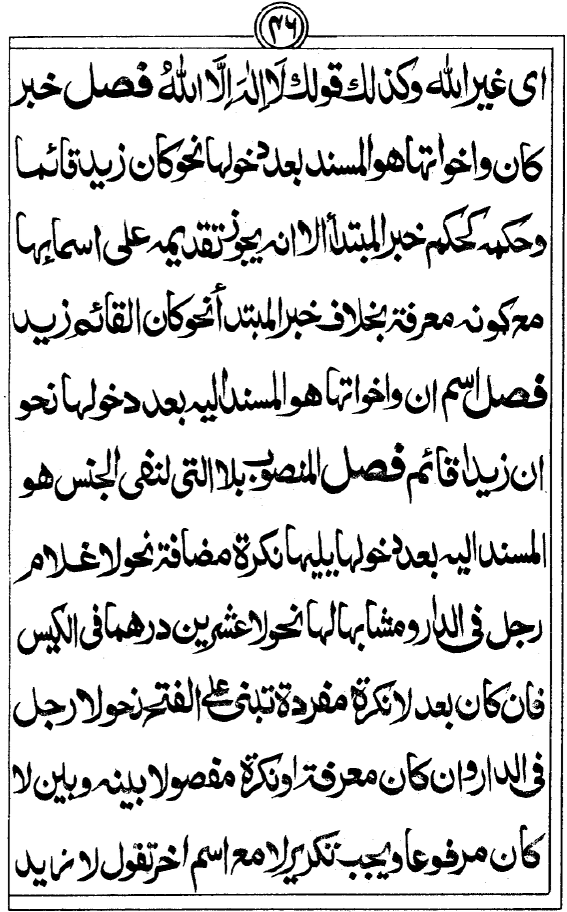 ۴۶
ای غیر الله وکذلك قولك لا اله الا الله فصل خبر
کان واخواتها هو المسند بعد دخولها نحو کان زید قائما
وحکمه کحکم خبر المبتدأ الا انه یجوز تقدیمه علی اسمائها
مع کونه معرفة بخلاف خبر المبتدأ نحو کان القائم زید
فصل اسم ان واخواتها هو المسند الیه بعد دخولها نحو
ان زیدا قائم فصل المنصوب بلا التی لنفی الجنس هو
المسند الیه بعد دخولها یلیها نکرة مضافة نحو لا غلام
رجل فی الدار ومشابها لها نحو لا عشرین درهما فی الکیس
فان کان بعد لا نکرة مفردة تبنی علی الفتح نحو لا رجل
فی الدار وان کان معرفة او نکرة مفصولا بینه وبین لا
کان مرفوعا ویجب تکریر لا مع اسم اخر تقول لا زید